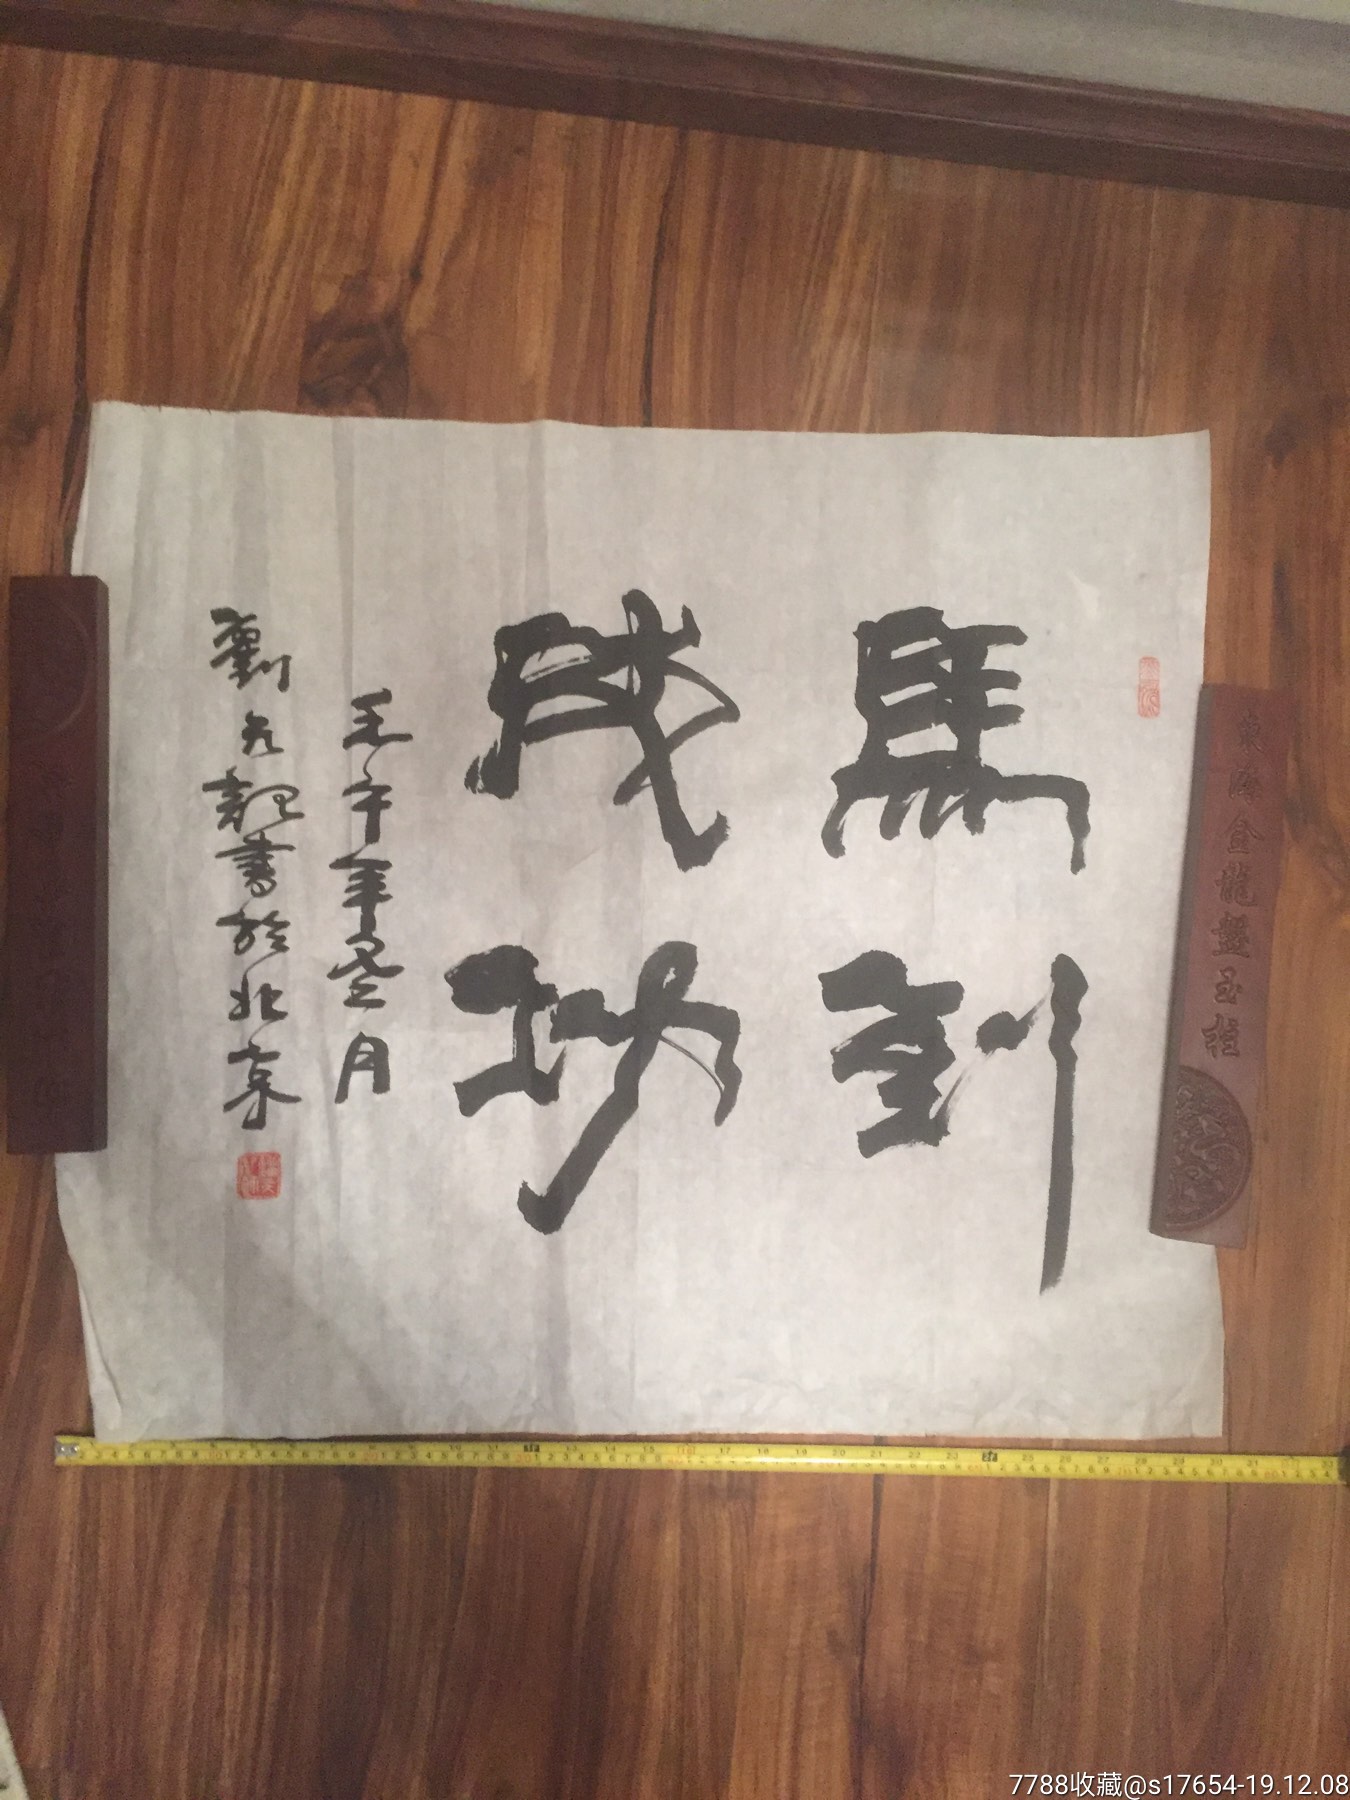 馬到
成功
壬午年冬月
劉元記書於北京
東海金龍盤玉柱
7788收藏@s17654-19.12.08